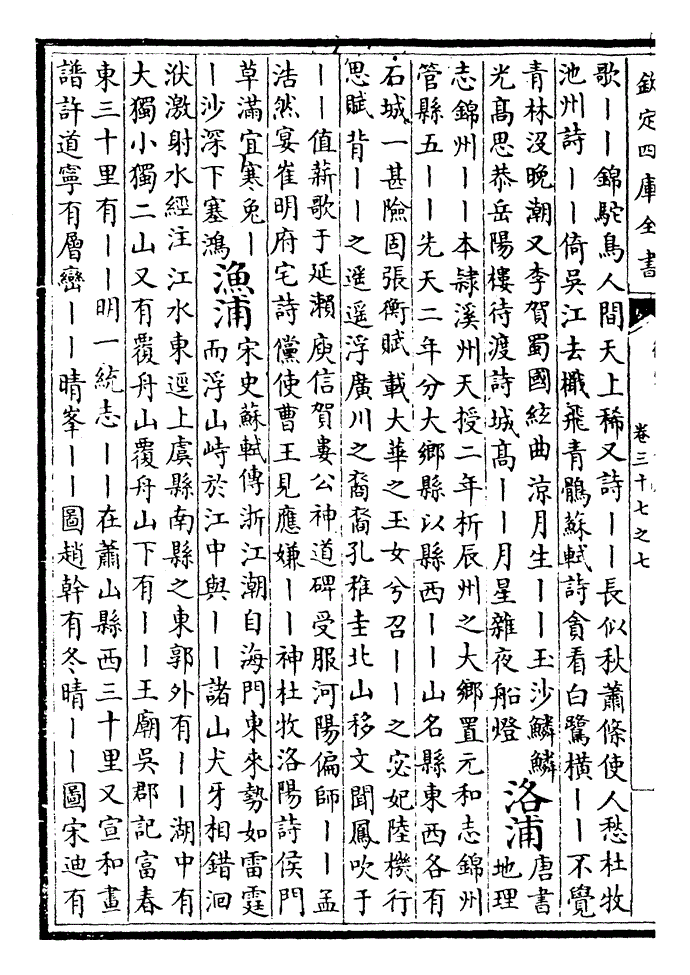 欽定四庫全書
卷三十七之七
歌丨丨錦駝鳥人間天上稀又詩丨丨長似秋蕭條使人愁杜牧
池州詩丨丨倚吳江去檝飛青鶻蘇軾詩貪看白鷺橫丨丨不覺
青林沒晚潮又李賀蜀國絃曲涼月生丨丨玉沙鱗鱗
光高思恭岳陽樓待渡詩城高丨丨月星雜夜船燈
洛浦
唐書
地理
志錦州丨丨本隸溪州天授二年析辰州之大鄉置元和志錦州
管縣五丨丨先天二年分大鄉縣以縣西丨丨山名縣東西各有
石城一甚險固張衡賦載大華之玉女兮召丨丨之宓妃陸機行
思賦背丨丨之遥遥浮廣川之裔裔孔稚圭北山移文聞鳳吹于
丨丨值薪歌于延瀨庾信賀婁公神道碑受服河陽偏師丨丨孟
浩然宴崔明府宅詩儻使曹王見應嫌丨丨神杜牧洛陽詩侯門
草滿宜寒兔丨
丨沙深下塞鴻
漁浦
宋史蘇軾傳浙江潮自海門東來勢如雷霆
而浮山峙於江中與丨丨諸山犬牙相錯洄
洑激射水經注江水東逕上虞縣南縣之東郭外有丨丨湖中有
大獨小獨二山又有覆舟山覆舟山下有丨丨王廟吳郡記富春
東三十里有丨丨明一統志丨丨在蕭山縣西三十里又宣和畫
譜許道寧有層巒丨丨晴峯丨丨圖趙幹有冬晴丨丨圖宋迪有